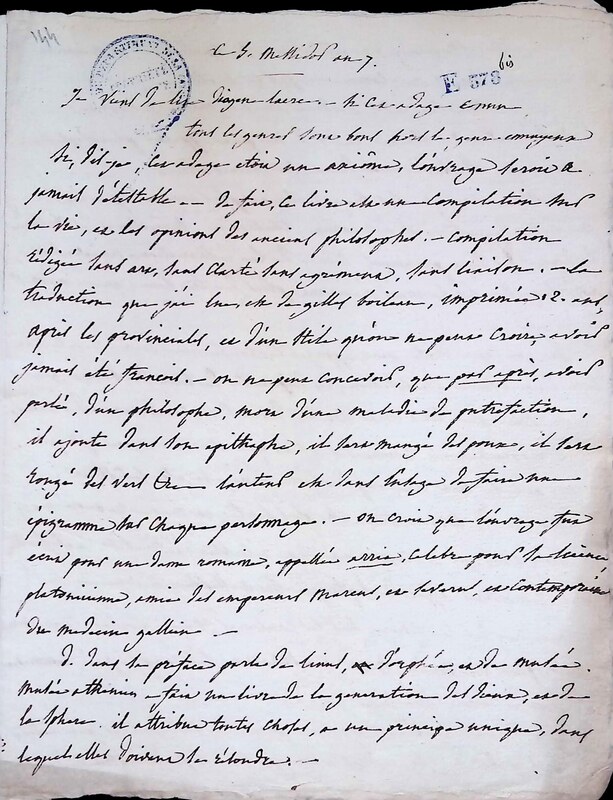 144
Ce 5. Messidor an 7.
bis
F 378
Je viens de lire diogene laerce. - si cet adage connu
tous les genres sont bons hors le genre ennuyeux
si, dis-je, cet adage etoit un axiôme, l'ouvrage seroit a
jamais détestable. - de fait, ce livre est une Compilation sur
la vie, et les opinions des anciens philosophes. - Compilation
rédigée sans art, sans clarté sans agrément, sans liaison. - La
traduction que j'ai lue, est de gilles boileau, imprimée 12. ans
après les provinciales, et d'un stile qu'on ne peut croire avoir
jamais été francois. - on ne peut concevoir, que pas après, avoir
parlé, d'un philosophe, mort d'une maladie de putrefaction,
il ajoute dans son epithaphe, il sera mangé des poux, il sera
rongé des vers l'auteur est dans l'usage de faire une
épigramme sur chaque personnage. - on croit que l'ouvrage fut
écrit pour une dame romaine, appellée arria, célebre pour la science
platonicienne, amie des empereurs marcus, et severus, et Contemporaine
du medecin gallien -
d. dans la préface parle de linus, d'orphée, et de musée.
musée athenien a fait un livre de la generation des dieux, et de
la sphere. il attribue toutes choses, a un principe unique, dans
lequel elles doivent se résoudre. -